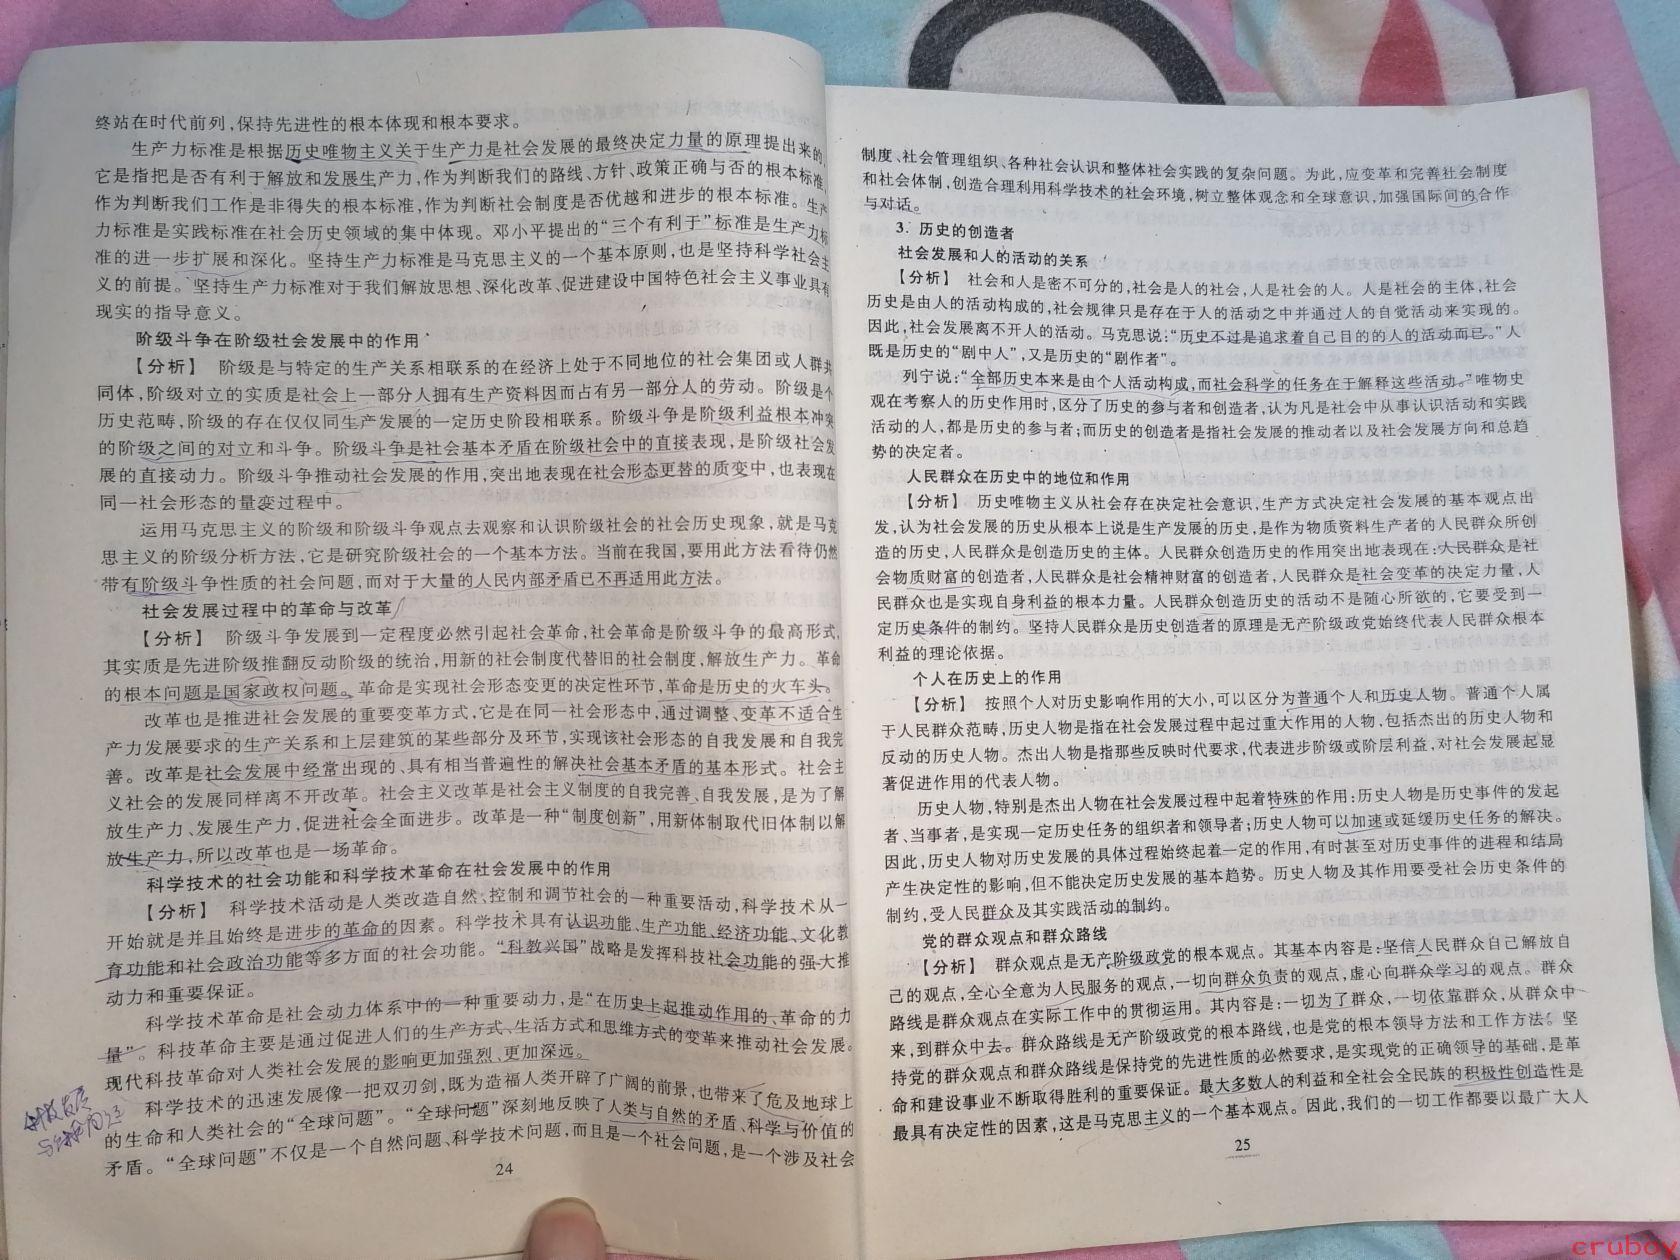 终站在时代前列,保持先进性的根本体现和根本要求。
生产力标准是根据历史唯物主义关于生产力是社会发展的最终决定力量的原理提出来的,
它是指把是否有利于解放和发展生产力,作为判断我们的路线、方针、政策正确与否的根本标准,
作为判断我们工作是非得失的根本标准,作为判断社会制度是否优越和进步的根本标准。生产
力标准是实践标准在社会历史领域的集中体现。邓小平提出的“三个有利于”标准是生产力标
准的进一步扩展和深化。坚持生产力标准是马克思主义的一个基本原则,也是坚持科学社会主
义的前提。坚持生产力标准对于我们解放思想、深化改革、促进建设中国特色社会主义事业具有
现实的指导意义。
阶级斗争在阶级社会发展中的作用
【分析】 阶级是与特定的生产关系相联系的在经济上处于不同地位的社会集团或人群共
同体,阶级对立的实质是社会上一部分人拥有生产资料因而占有另一部分人的劳动。阶级是个
历史范畴,阶级的存在仅仅同生产发展的一定历史阶段相联系。阶级斗争是阶级利益根本冲突
的阶级之间的对立和斗争。阶级斗争是社会基本矛盾在阶级社会中的直接表现,是阶级社会发
展的直接动力。阶级斗争推动社会发展的作用,突出地表现在社会形态更替的质变中,也表现在
同一社会形态的量变过程中。
运用马克思主义的阶级和阶级斗争观点去观察和认识阶级社会的社会历史现象,就是马克
思主义的阶级分析方法,它是研究阶级社会的一个基本方法。当前在我国,要用此方法看待仍然
带有阶级斗争性质的社会问题,而对于大量的人民内部矛盾已不再适用此方法。
社会发展过程中的革命与改革
【分析】 阶级斗争发展到一定程度必然引起社会革命,社会革命是阶级斗争的最高形式,
其实质是先进阶级推翻反动阶级的统治,用新的社会制度代替旧的社会制度,解放生产力。革命
的根本问题是国家政权问题。革命是实现社会形态变更的决定性环节,革命是历史的火车头。
改革也是推进社会发展的重要变革方式,它是在同一社会形态中,通过调整、变革不适合生
产力发展要求的生产关系和上层建筑的某些部分及环节,实现该社会形态的自我发展和自我完
善。改革是社会发展中经常出现的、具有相当普遍性的解决社会基本矛盾的基本形式。社会主
义社会的发展同样离不开改革。社会主义改革是社会主义制度的自我完善、自我发展,是为了解
放生产力、发展生产力,促进社会全面进步。改革是一种“制度创新”,用新体制取代旧体制以解
放生产力,所以改革也是一场革命。
科学技术的社会功能和科学技术革命在社会发展中的作用
【分析】 科学技术活动是人类改造自然、控制和调节社会的一种重要活动,科学技术从一
开始就是并且始终是进步的革命的因素。科学技术具有认识功能、生产功能、经济功能、文化教
育功能和社会政治功能等多方面的社会功能。“科教兴国”战略是发挥科技社会功能的强大推
动力和重要保证。
科学技术革命是社会动力体系中的一种重要动力,是“在历史上起推动作用的、革命的力
量”。科技革命主要是通过促进人们的生产方式、生活方式和思维方式的变革来推动社会发展。
现代科技革命对人类社会发展的影响更加强烈、更加深远。
科学技术的迅速发展像一把双刃剑,既为造福人类开辟了广阔的前景,也带来了危及地球上
的生命和人类社会的“全球问题”。“全球问题”深刻地反映了人类与自然的矛盾、科学与价值的
矛盾。“全球问题”不仅是一个自然问题、科学技术问题,而且是一个社会问题,是一个涉及社会
24
制度、社会管理组织、各种社会认识和整体社会实践的复杂问题。为此,应变革和完善社会制度
和社会体制,创造合理利用科学技术的社会环境,树立整体观念和全球意识,加强国际间的合作
与对话。
3. 历史的创造者
社会发展和人的活动的关系
【分析】 社会和人是密不可分的,社会是人的社会,人是社会的人。人是社会的主体,社会
历史是由人的活动构成的,社会规律只是存在于人的活动之中并通过人的自觉活动来实现的。
因此,社会发展离不开人的活动。马克思说:“历史不过是追求着自己目的的人的活动而已。”人
既是历史的“剧中人”,又是历史的“剧作者”。
列宁说:“全部历史本来是由个人活动构成,而社会科学的任务在于解释这些活动。”唯物史
观在考察人的历史作用时,区分了历史的参与者和创造者,认为凡是社会中从事认识活动和实践
活动的人,都是历史的参与者;而历史的创造者是指社会发展的推动者以及社会发展方向和总趋
势的决定者。
人民群众在历史中的地位和作用
【分析】 历史唯物主义从社会存在决定社会意识,生产方式决定社会发展的基本观点出
发,认为社会发展的历史从根本上说是生产发展的历史,是作为物质资料生产者的人民群众所创
造的历史,人民群众是创造历史的主体。人民群众创造历史的作用突出地表现在:人民群众是社
会物质财富的创造者,人民群众是社会精神财富的创造者,人民群众是社会变革的决定力量,人
民群众也是实现自身利益的根本力量。人民群众创造历史的活动不是随心所欲的,它要受到一
定历史条件的制约。坚持人民群众是历史创造者的原理是无产阶级政党始终代表人民群众根本
利益的理论依据。
个人在历史上的作用
【分析】 按照个人对历史影响作用的大小,可以区分为普通个人和历史人物。普通个人属
于人民群众范畴,历史人物是指在社会发展过程中起过重大作用的人物,包括杰出的历史人物和
反动的历史人物。杰出人物是指那些反映时代要求,代表进步阶级或阶层利益,对社会发展起显
著促进作用的代表人物。
历史人物,特别是杰出人物在社会发展过程中起着特殊的作用:历史人物是历史事件的发起
者、当事者,是实现一定历史任务的组织者和领导者;历史人物可以加速或延缓历史任务的解决。
因此,历史人物对历史发展的具体过程始终起着一定的作用,有时甚至对历史事件的进程和结局
产生决定性的影响,但不能决定历史发展的基本趋势。历史人物及其作用要受社会历史条件的
制约,受人民群众及其实践活动的制约。
党的群众观点和群众路线
【分析】 群众观点是无产阶级政党的根本观点。其基本内容是:坚信人民群众自己解放自
己的观点,全心全意为人民服务的观点,一切向群众负责的观点,虚心向群众学习的观点。群众
路线是群众观点在实际工作中的贯彻运用。其内容是:一切为了群众,一切依靠群众,从群众中
来,到群众中去。群众路线是无产阶级政党的根本路线,也是党的根本领导方法和工作方法。坚
持党的群众观点和群众路线是保持党的先进性质的必然要求,是实现党的正确领导的基础,是革
命和建设事业不断取得胜利的重要保证。最大多数人的利益和全社会全民族的积极性创造性是
最具有决定性的因素,这是马克思主义的一个基本观点。因此,我们的一切工作都要以最广大人
25
cruboy